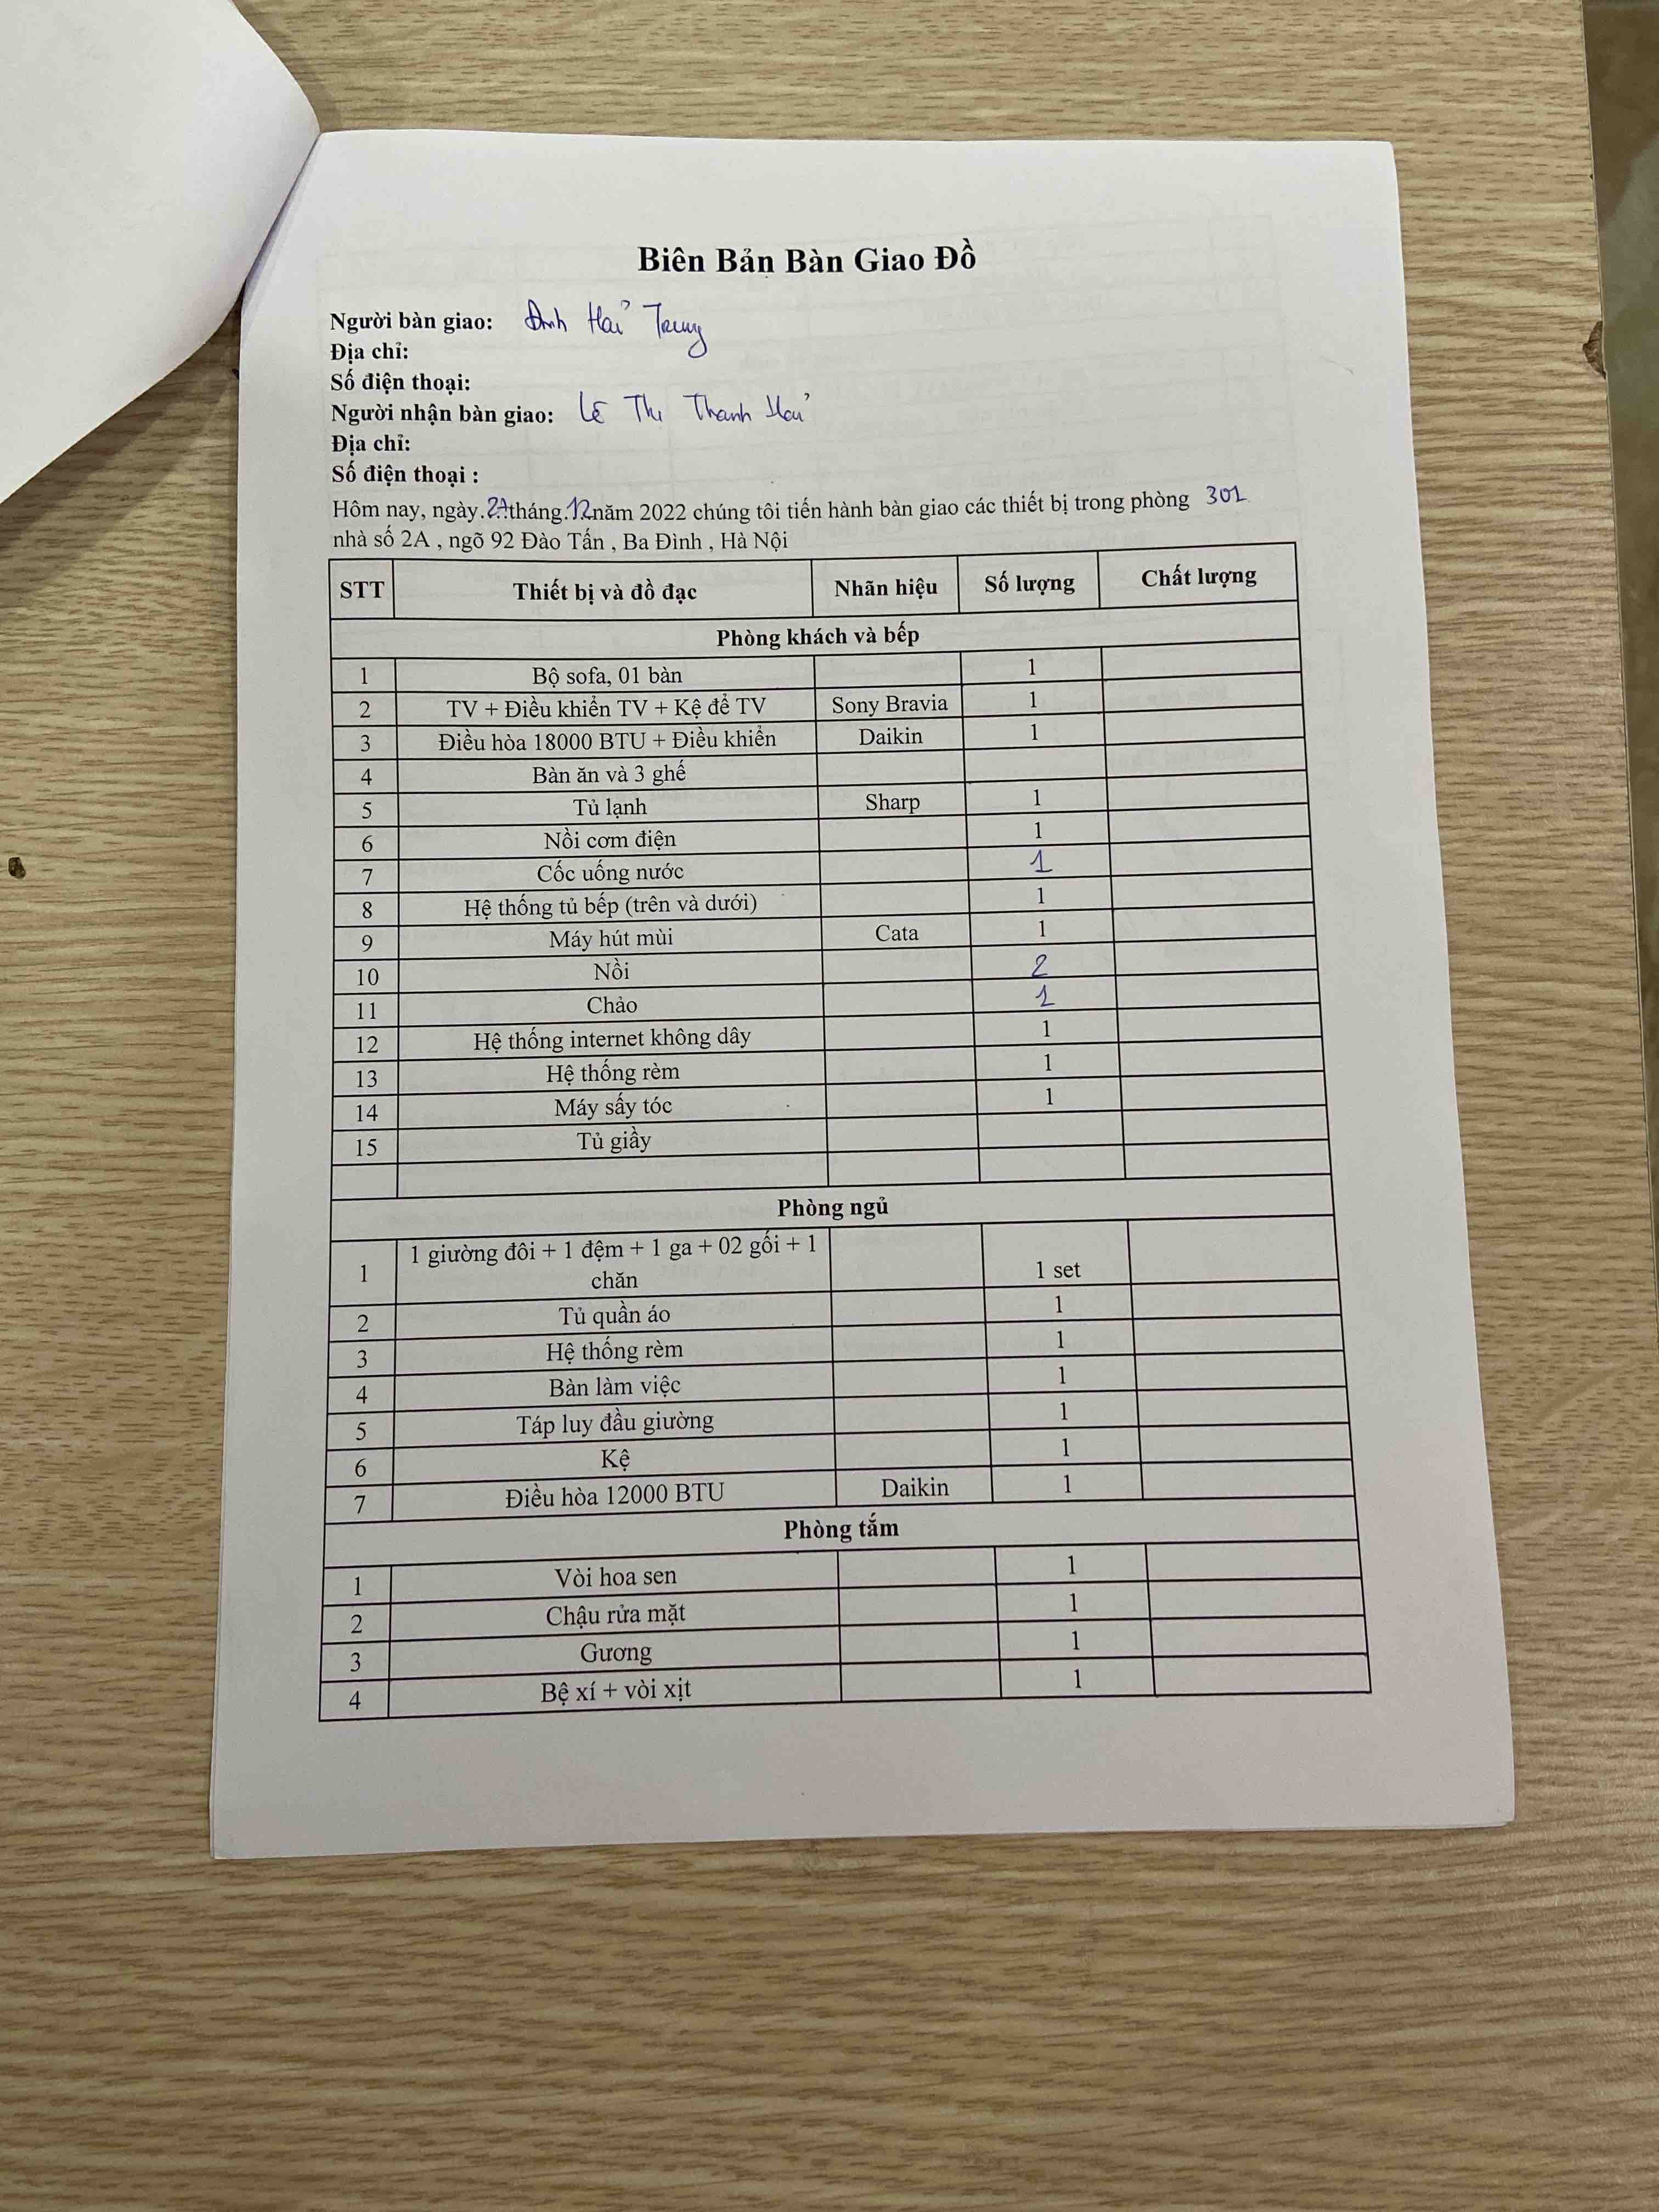 Biên Bản Bàn Giao Đồ
Người bàn giao: Đinh Hải Trung
Địa chỉ:
Số điện thoại:
Người nhận bàn giao: Lê Thị Thanh Hải
Địa chỉ:
Số điện thoại :
Hôm nay, ngày 27 tháng 12 năm 2022 chúng tôi tiến hành bàn giao các thiết bị trong phòng 301
nhà số 2A , ngõ 92 Đào Tấn , Ba Đình , Hà Nội
STT Thiết bị và đồ đạc Nhãn hiệu Số lượng Chất lượng
Phòng khách và bếp
1 Bộ sofa, 01 bàn 1
2 TV + Điều khiển TV + Kệ để TV Sony Bravia 1
3 Điều hòa 18000 BTU + Điều khiển Daikin 1
4 Bàn ăn và 3 ghế
5 Tủ lạnh Sharp 1
6 Nồi cơm điện 1
7 Cốc uống nước 1
8 Hệ thống tủ bếp (trên và dưới) 1
9 Máy hút mùi Cata 1
10 Nồi 2
11 Chảo 1
12 Hệ thống internet không dây 1
13 Hệ thống rèm 1
14 Máy sấy tóc 1
15 Tủ giầy
Phòng ngủ
1 1 giường đôi + 1 đệm + 1 ga + 02 gối + 1
chăn 1 set
2 Tủ quần áo 1
3 Hệ thống rèm 1
4 Bàn làm việc 1
5 Táp luy đầu giường 1
6 Kệ 1
7 Điều hòa 12000 BTU Daikin 1
Phòng tắm
1 Vòi hoa sen 1
2 Chậu rửa mặt 1
3 Gương 1
4 Bệ xí + vòi xịt 1